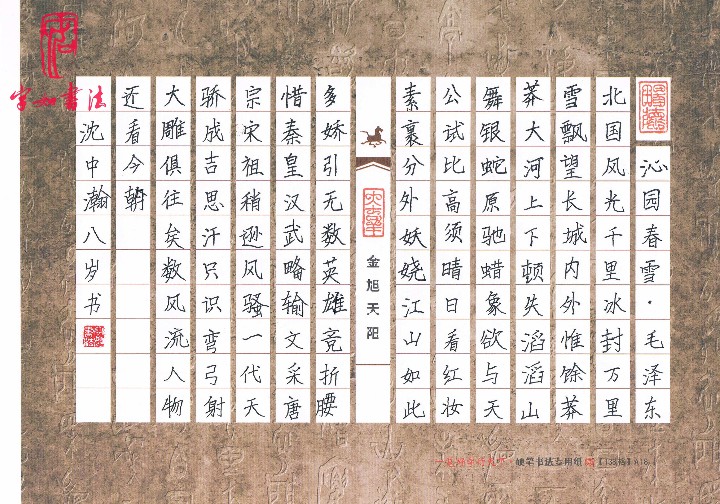 沁园春雪·毛泽东
北国风光千里冰封万里
雪飘望长城内外惟馀莽
莽大河上下顿失滔滔山
舞银蛇原驰蜡象欲与天
公试比高须晴日看红妆
素裹分外妖娆江山如此
金旭天阳
多娇引无数英雄竞折腰
惜秦皇汉武略输文采唐
宗宋祖稍逊风骚一代天
骄成吉思汗只识弯弓射
大雕俱往矣数风流人物
还看今朝
沈中瀚八岁书
字如书法
硬笔书法专用纸